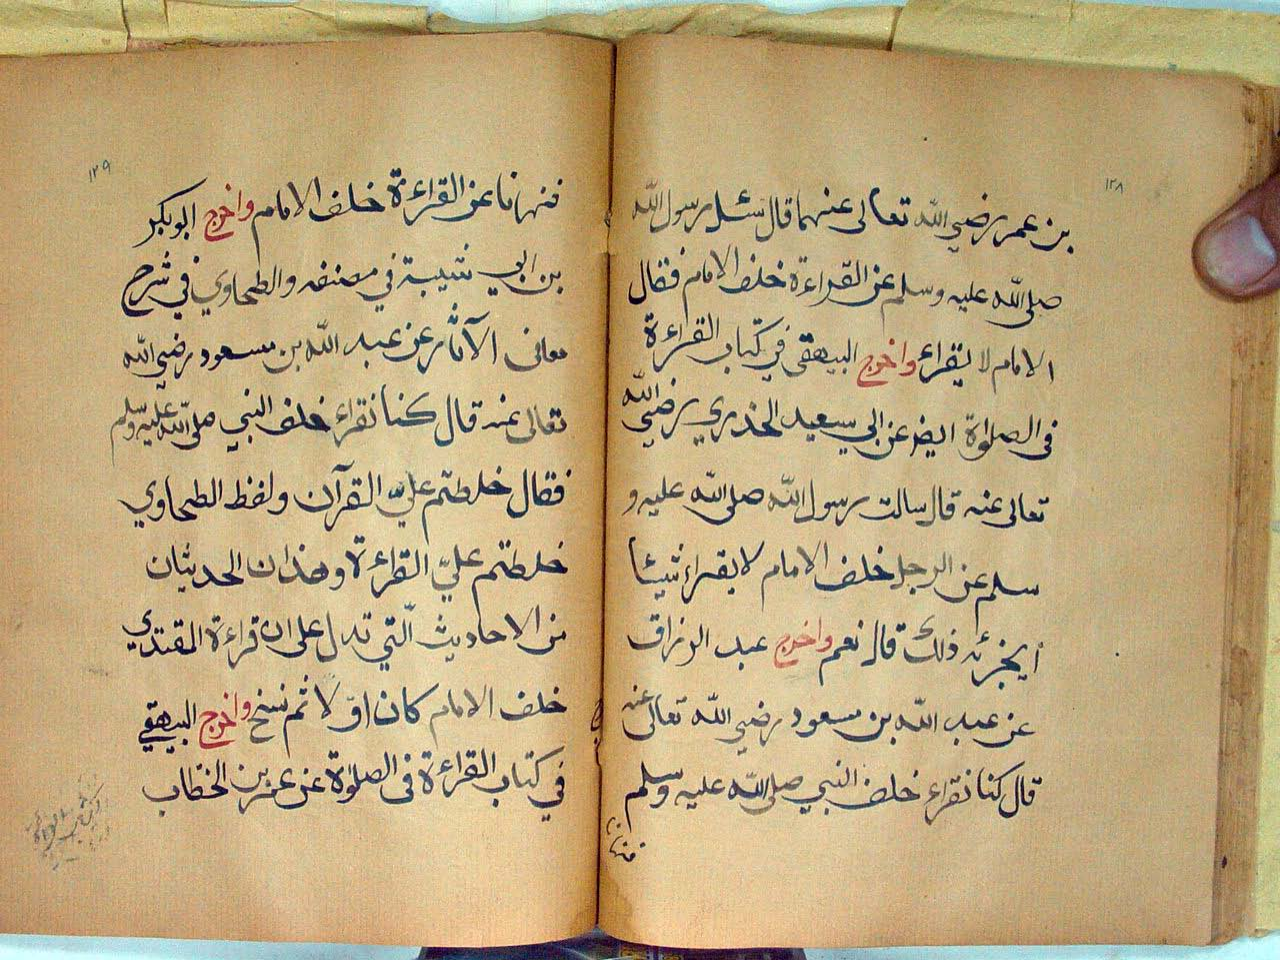 ١٢٨
بن عمر رضي الله تعالى عنهما قال سئل رسول الله
صلى الله عليه وسلم عن القراءة خلف الامام فقال
الامام لا يقراء واخرج البيهقى في كتاب القراءة
فى الصلواة ايض عن ابي سعيد الخدري رضي الله
تعالى عنه قال سالت رسول الله صلى الله عليه و
سلم عن الرجل خلف الامام لا يقراء شيئا
ايجزئه ذلك قال نعم واخرج عبد الرزاق
عن عبد الله بن مسعود رضي الله تعالى عنه
قال كنا نقراء خلف النبي صلى الله عليه وسلم
فنهانا
١٢٩
فنهانا عن القراءة خلف الامام واخرج ابو بكر
بن ابي شيبة في مصنفه والطحاوي في شرح
معانى الآثار عن عبد الله بن مسعود رضي الله
تعالى عنه قال كنا نقراء خلف النبي صلى الله عليه وسلم
فقال خلطتم علي القرآن ولفظ الطحاوي
خلطتم علي القراءة وهذان الحديثان
من الاحاديث التي تدل على ان قراءة المقتدي
خلف الامام كان اولا ثم نسخ واخرج البيهقي
في كتاب القراءة فى الصلوة عن عمر بن الخطاب